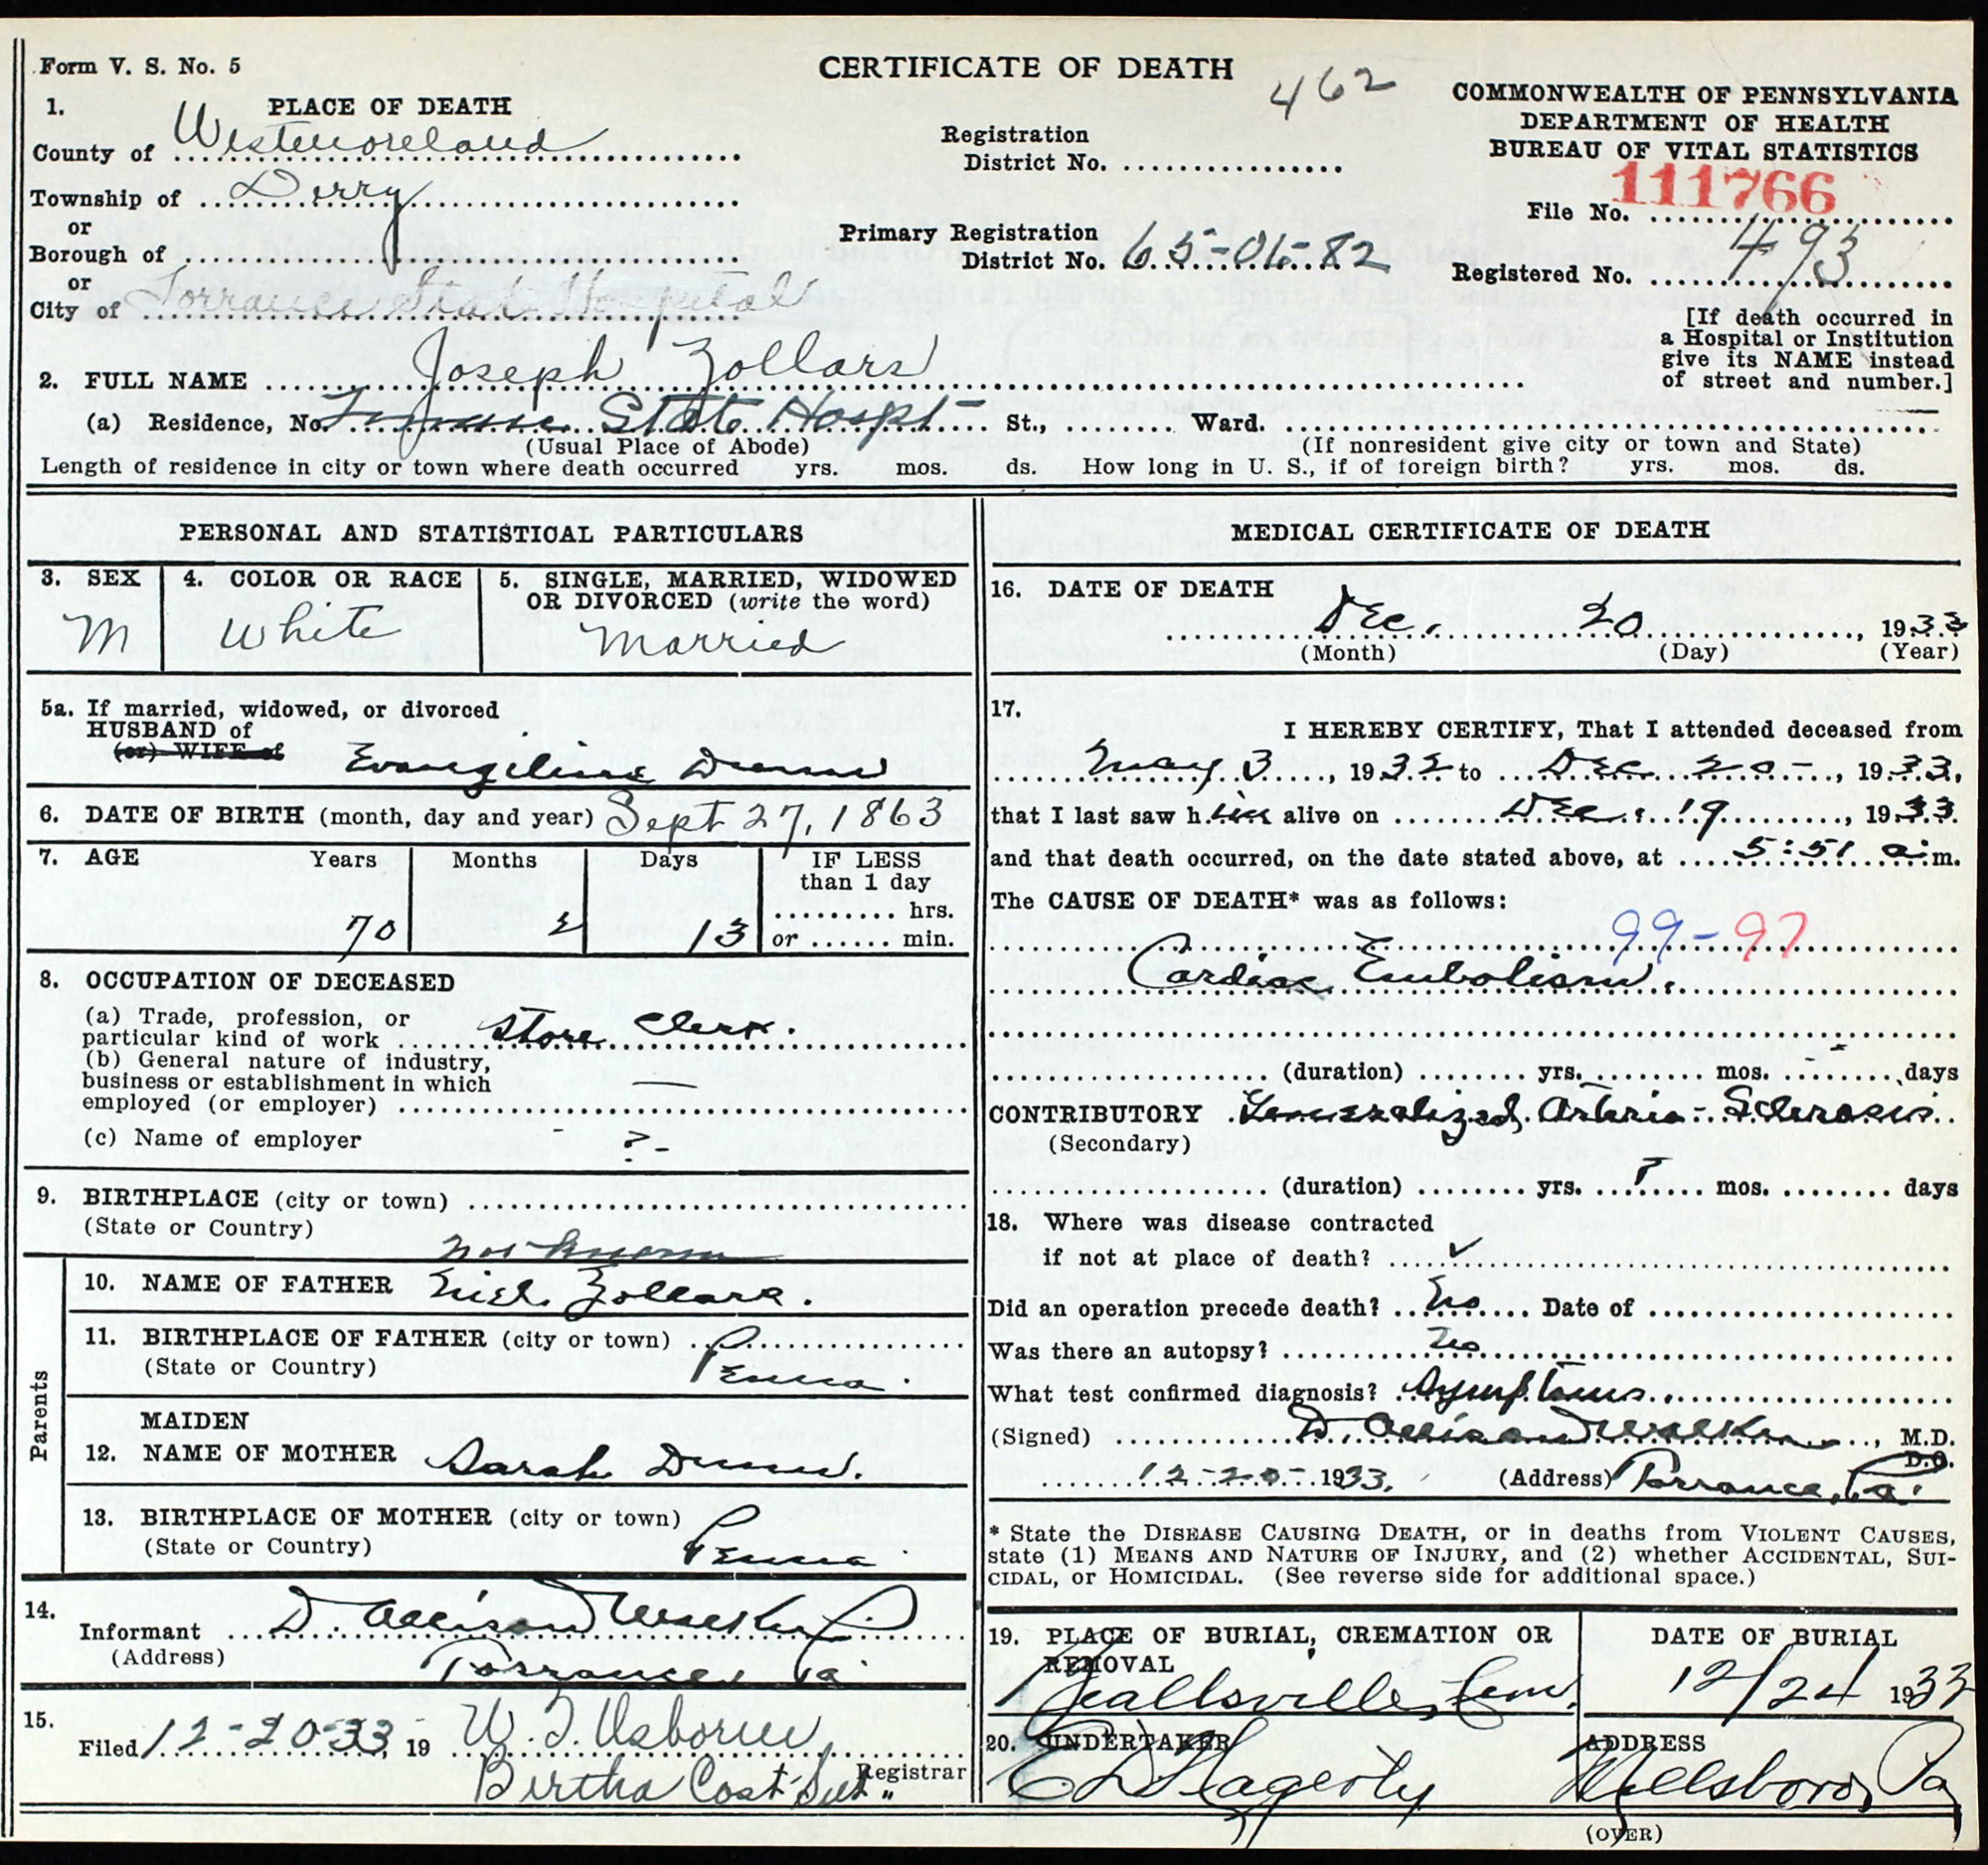 Form V. S. No. 5
CERTIFICATE OF DEATH
462
COMMONWEALTH OF PENNSYLVANIA
DEPARTMENT OF HEALTH
BUREAU OF VITAL STATISTICS
1. PLACE OF DEATH
County of Westmoreland
Township of Derry
or
Borough of
or
City of Torrance State Hospital
Registration
District No.
Primary Registration
District No. 65-06-82
File No. 111766
Registered No. 493
[If death occurred in
a Hospital or Institution
give its NAME instead
of street and number.]
2. FULL NAME Joseph Zollars
(a) Residence, No. Torrance State Hospt- St., Ward.
(Usual Place of Abode) (If nonresident give city or town and State)
Length of residence in city or town where death occurred yrs. mos. ds. How long in U. S., if of foreign birth? yrs. mos. ds.
PERSONAL AND STATISTICAL PARTICULARS
3. SEX 4. COLOR OR RACE 5. SINGLE, MARRIED, WIDOWED
OR DIVORCED (write the word)
M White Married
5a. If married, widowed, or divorced
HUSBAND of
(or) WIFE of Evangeline
6. DATE OF BIRTH (month, day and year) Sept 27, 1863
7. AGE Years Months Days IF LESS
than 1 day
hrs.
70 2 13 or min.
8. OCCUPATION OF DECEASED
(a) Trade, profession, or
particular kind of work Store Clerk.
(b) General nature of industry,
business or establishment in which
employed (or employer) —
(c) Name of employer - ? -
9. BIRTHPLACE (city or town)
(State or Country)
not known
Parents
10. NAME OF FATHER Zollars.
11. BIRTHPLACE OF FATHER (city or town)
(State or Country) Penna.
MAIDEN
12. NAME OF MOTHER Sarah Dunn.
13. BIRTHPLACE OF MOTHER (city or town)
(State or Country) Penna.
14.
Informant D. Allison Walker
(Address) Torrance, Pa.
15.
Filed 12-20-33, 19 W. J. Osborne
Registrar
Bertha Cost Sub "
MEDICAL CERTIFICATE OF DEATH
16. DATE OF DEATH
Dec. 20, 1933
(Month) (Day) (Year)
17.
I HEREBY CERTIFY, That I attended deceased from
May 3, 1932 to Dec 20-, 1933,
that I last saw him alive on Dec. 19, 1933.
and that death occurred, on the date stated above, at 5:51 a.m.
The CAUSE OF DEATH* was as follows:
99-97
Cardiac Embolism.
(duration) yrs. mos. days
CONTRIBUTORY Generalized Arterio-Sclerosis.
(Secondary)
(duration) yrs. ? mos. days
18. Where was disease contracted
if not at place of death? ✓
Did an operation precede death? No Date of
Was there an autopsy? No
What test confirmed diagnosis? Symptoms.
(Signed) D. Allison Walker, M.D.
D.O.
12-20-1933, (Address) Torrance, Pa.
* State the DISEASE CAUSING DEATH, or in deaths from VIOLENT CAUSES,
state (1) MEANS AND NATURE OF INJURY, and (2) whether ACCIDENTAL, SUI-
CIDAL, or HOMICIDAL. (See reverse side for additional space.)
19. PLACE OF BURIAL, CREMATION OR
REMOVAL
Beallsville, Cem.
DATE OF BURIAL
12/24 1933
20. UNDERTAKER
E D Hagerty
ADDRESS
Millsboro, Pa
(OVER)